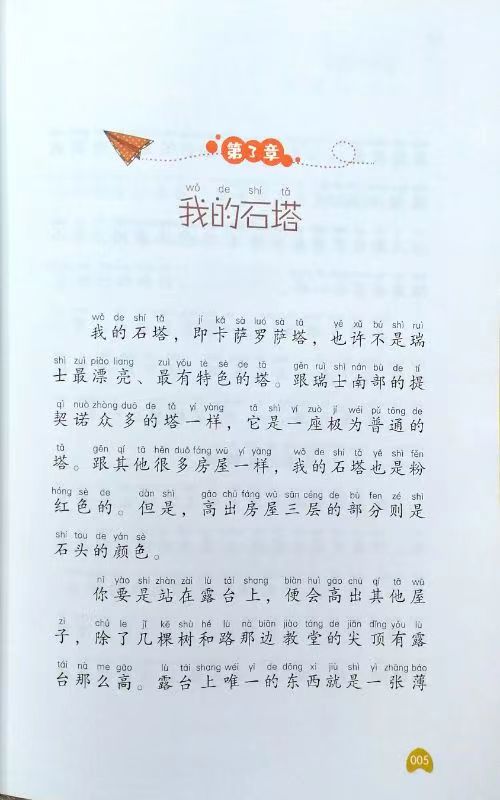 第1章
wǒ de shí tǎ
我的石塔
wǒ de shí tǎ jí kǎ sà luó sà tǎ yě xǔ bú shì ruì
我的石塔，即卡萨罗萨塔，也许不是瑞
shì zuì piào liang zuì yǒu tè sè de tǎ gēn ruì shì nán bù de tí
士最漂亮、最有特色的塔。跟瑞士南部的提
qì nuò zhòng duō de tǎ yí yàng tā shì yí zuò jí wéi pǔ tōng de
契诺众多的塔一样，它是一座极为普通的
tǎ gēn qí tā hěn duō fáng wū yí yàng wǒ de shí tǎ yě shì fěn
塔。跟其他很多房屋一样，我的石塔也是粉
hóng sè de dàn shì gāo chū fáng wū sān céng de bù fen zé shì
红色的。但是，高出房屋三层的部分则是
shí tou de yán sè
石头的颜色。
nǐ yào shi zhàn zài lù tái shang biàn huì gāo chū qí tā wū
你要是站在露台上，便会高出其他屋
zi chú le jǐ kē shù hé lù nà biān jiào táng de jiān dǐng yǒu lù
子，除了几棵树和路那边教堂的尖顶有露
tái nà me gāo lù tái shang wéi yī de dōng xi jiù shì yì zhāng báo
台那么高。露台上唯一的东西就是一张薄
005